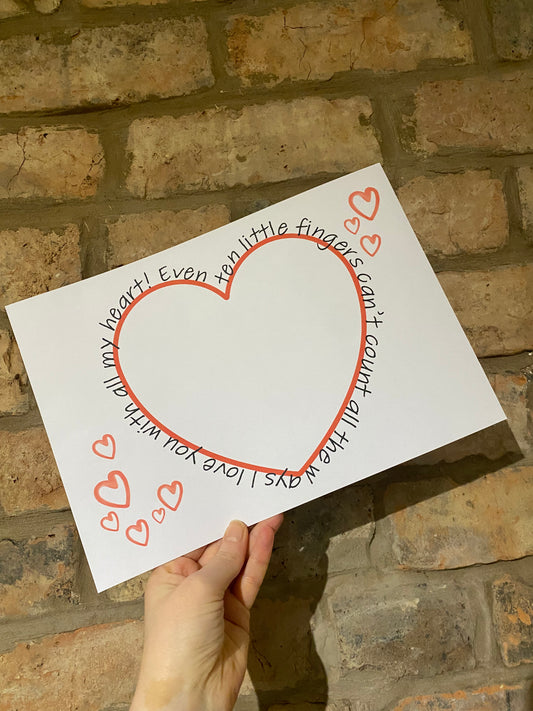 Even ten little fingers can't count all the ways I love you with all my heart!